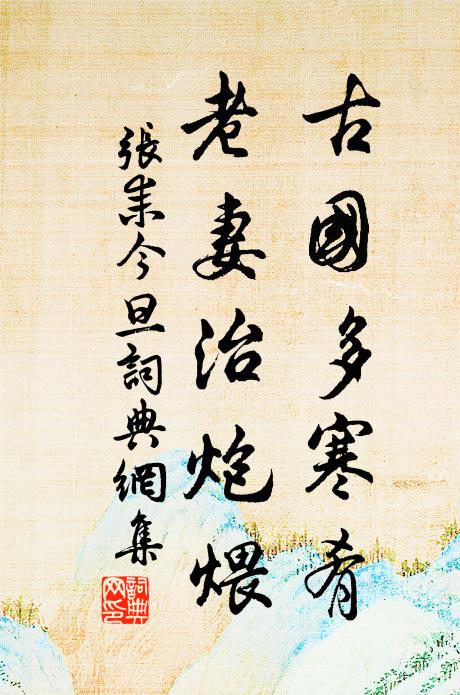 古國多寒肴
老妻治炮煨
張耒今旦詞典網集
詞典
网印